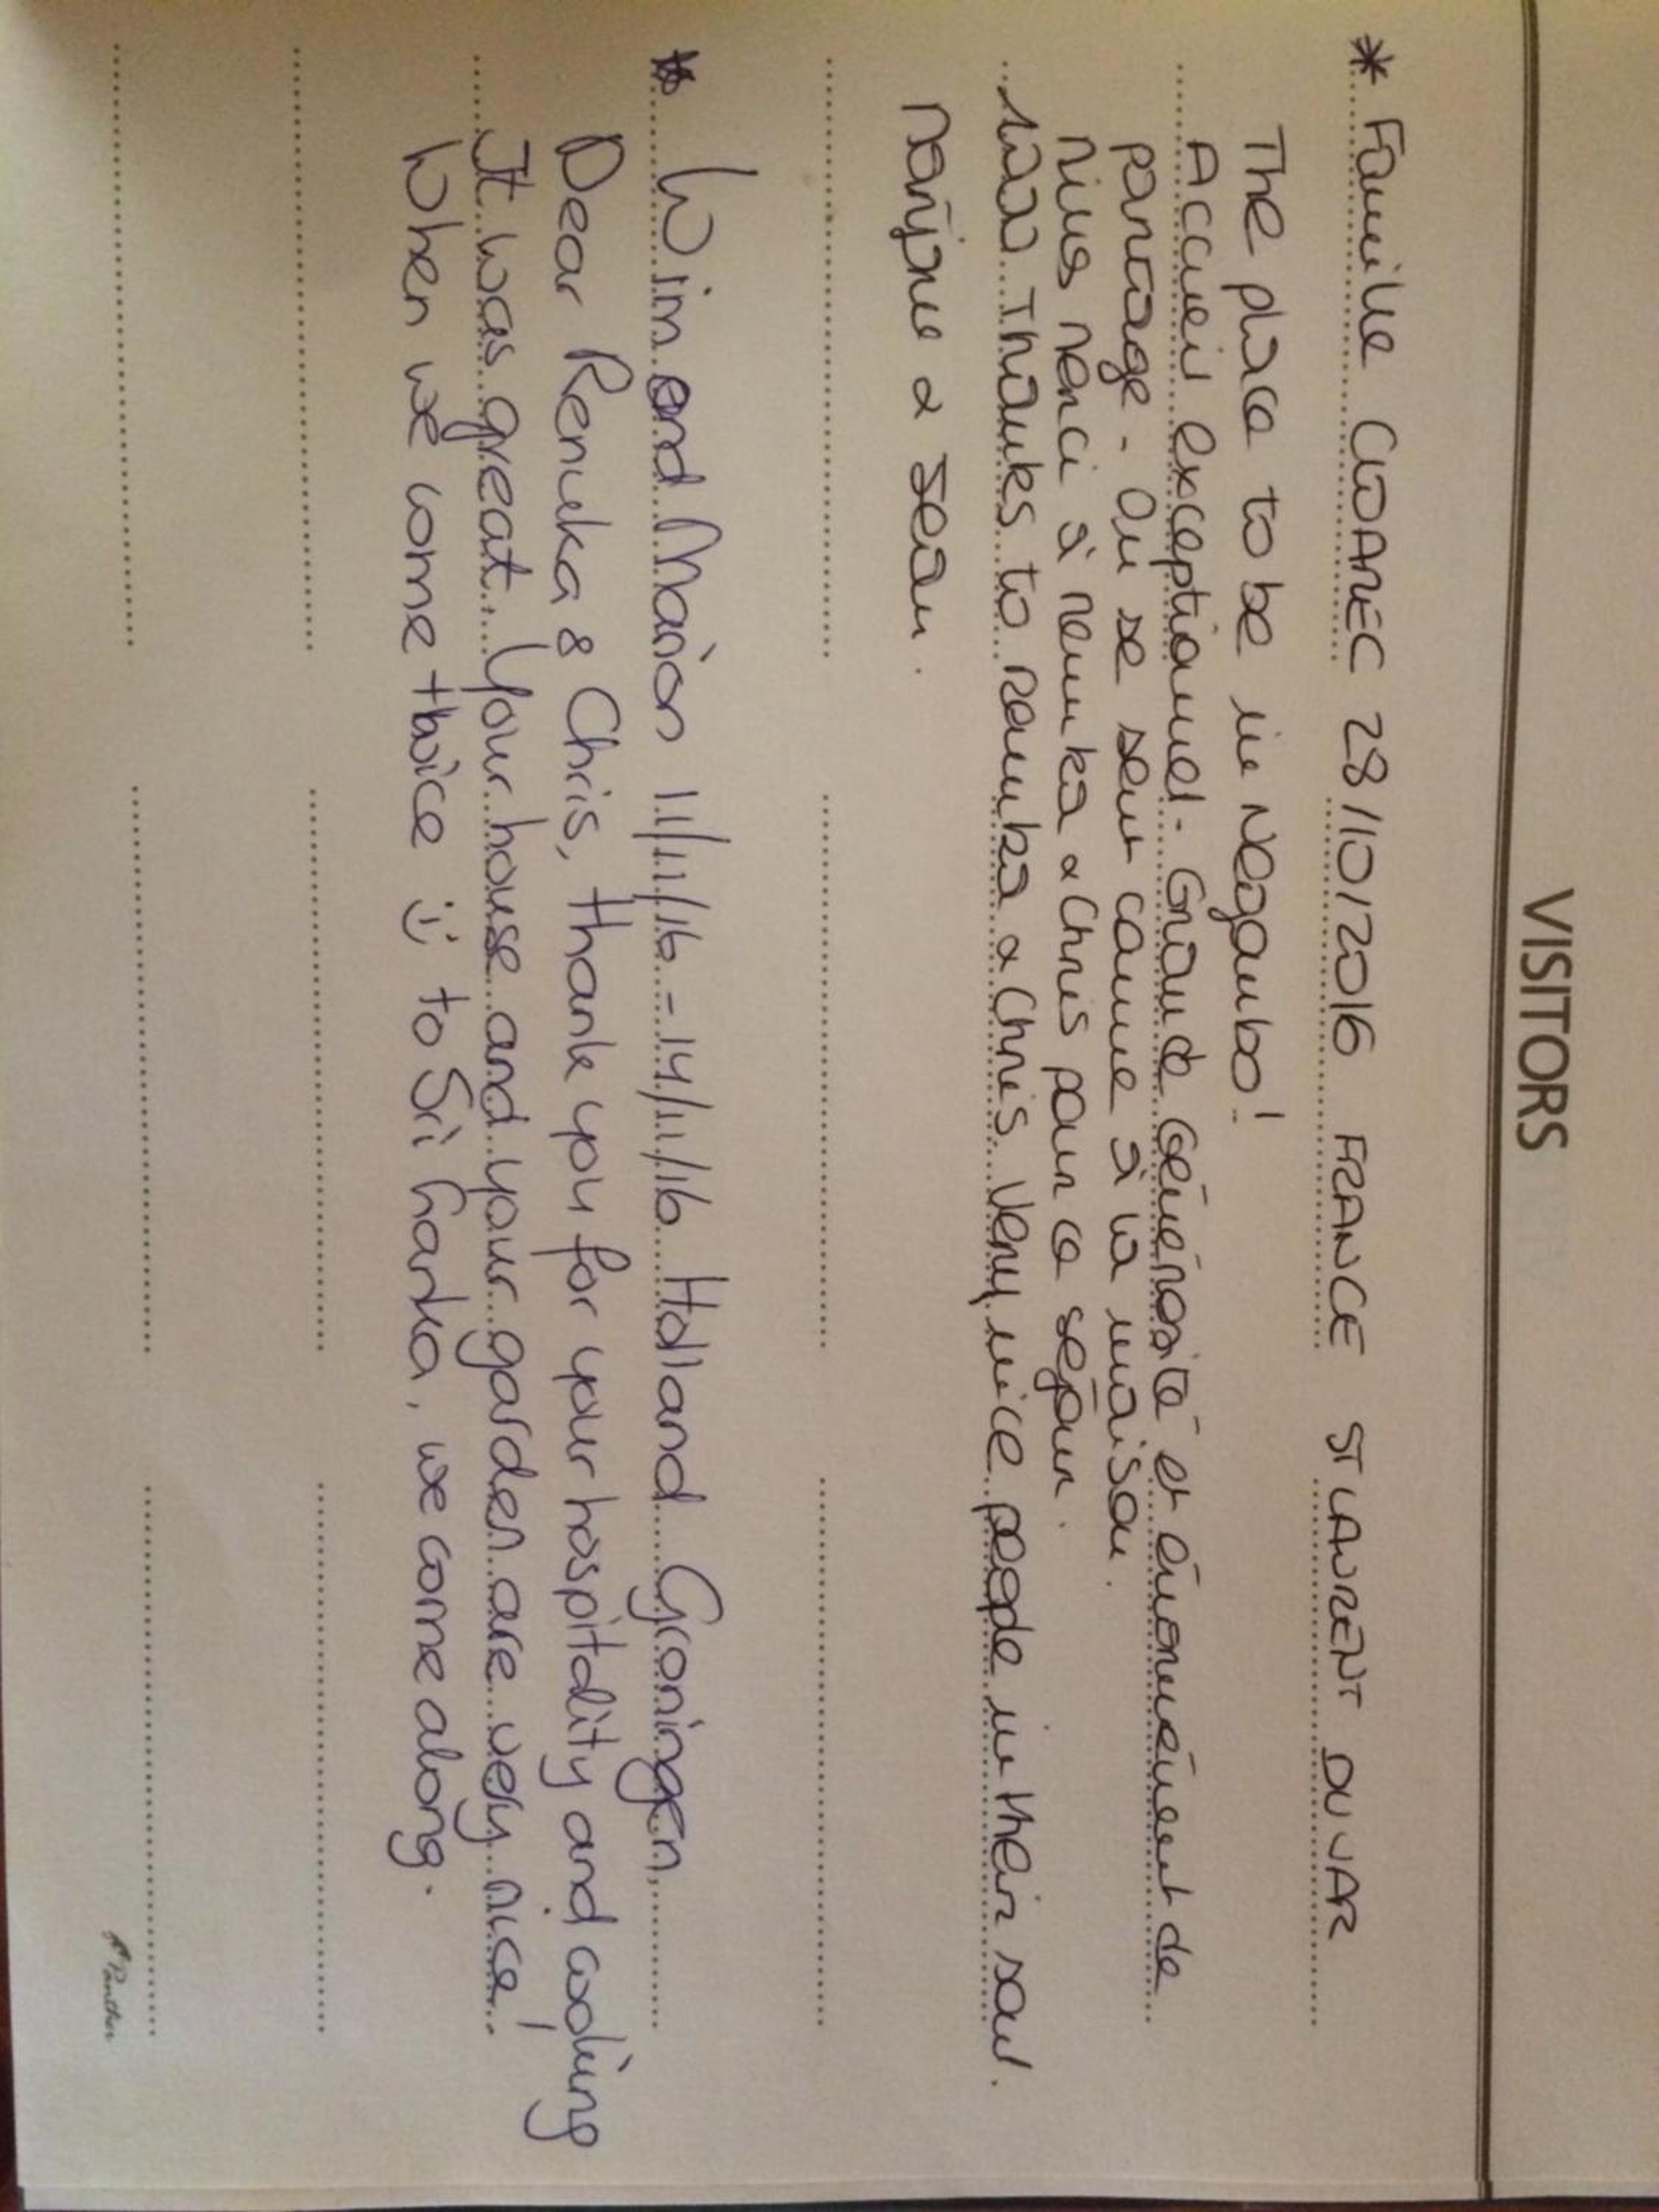 VISITORS
* Famille CLOAREC 28/10/2016 FRANCE ST LAURENT DU VAR
The place to be in Negombo!
Accueil exceptionnel. Grande Générosité et énormément de
partage. On se sent comme à la maison.
Mille merci à renuka & Chris pour ce séjour.
Thanks to renuka & Chris. Very nice people in their soul.
& Sean.
* Wim and Marion 11/11/16 - 14/11/16 Holland Groningen,
Dear Renuka & Chris, thank you for your hospitality and cooking
It was great. Your house and your garden are very nice!
When we come twice :) to Sri Lanka, we come along.
Panther